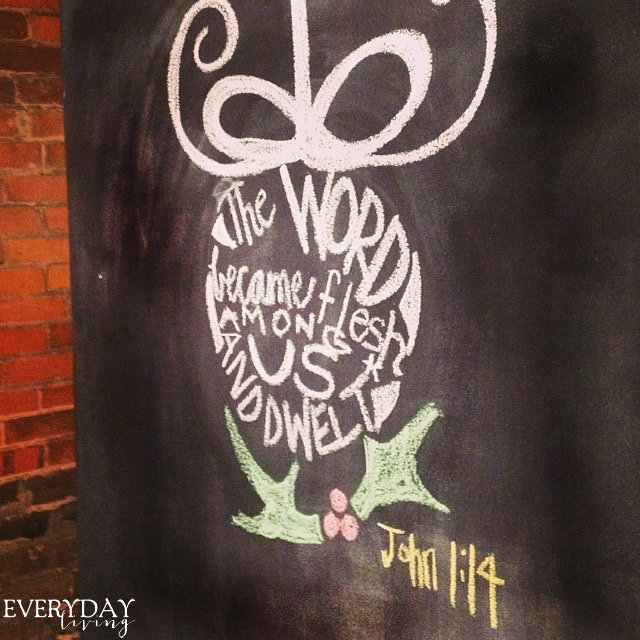 The WORD
became flesh
AMONG
US
AND DWELT
John 1:14
EVERYDAY
living